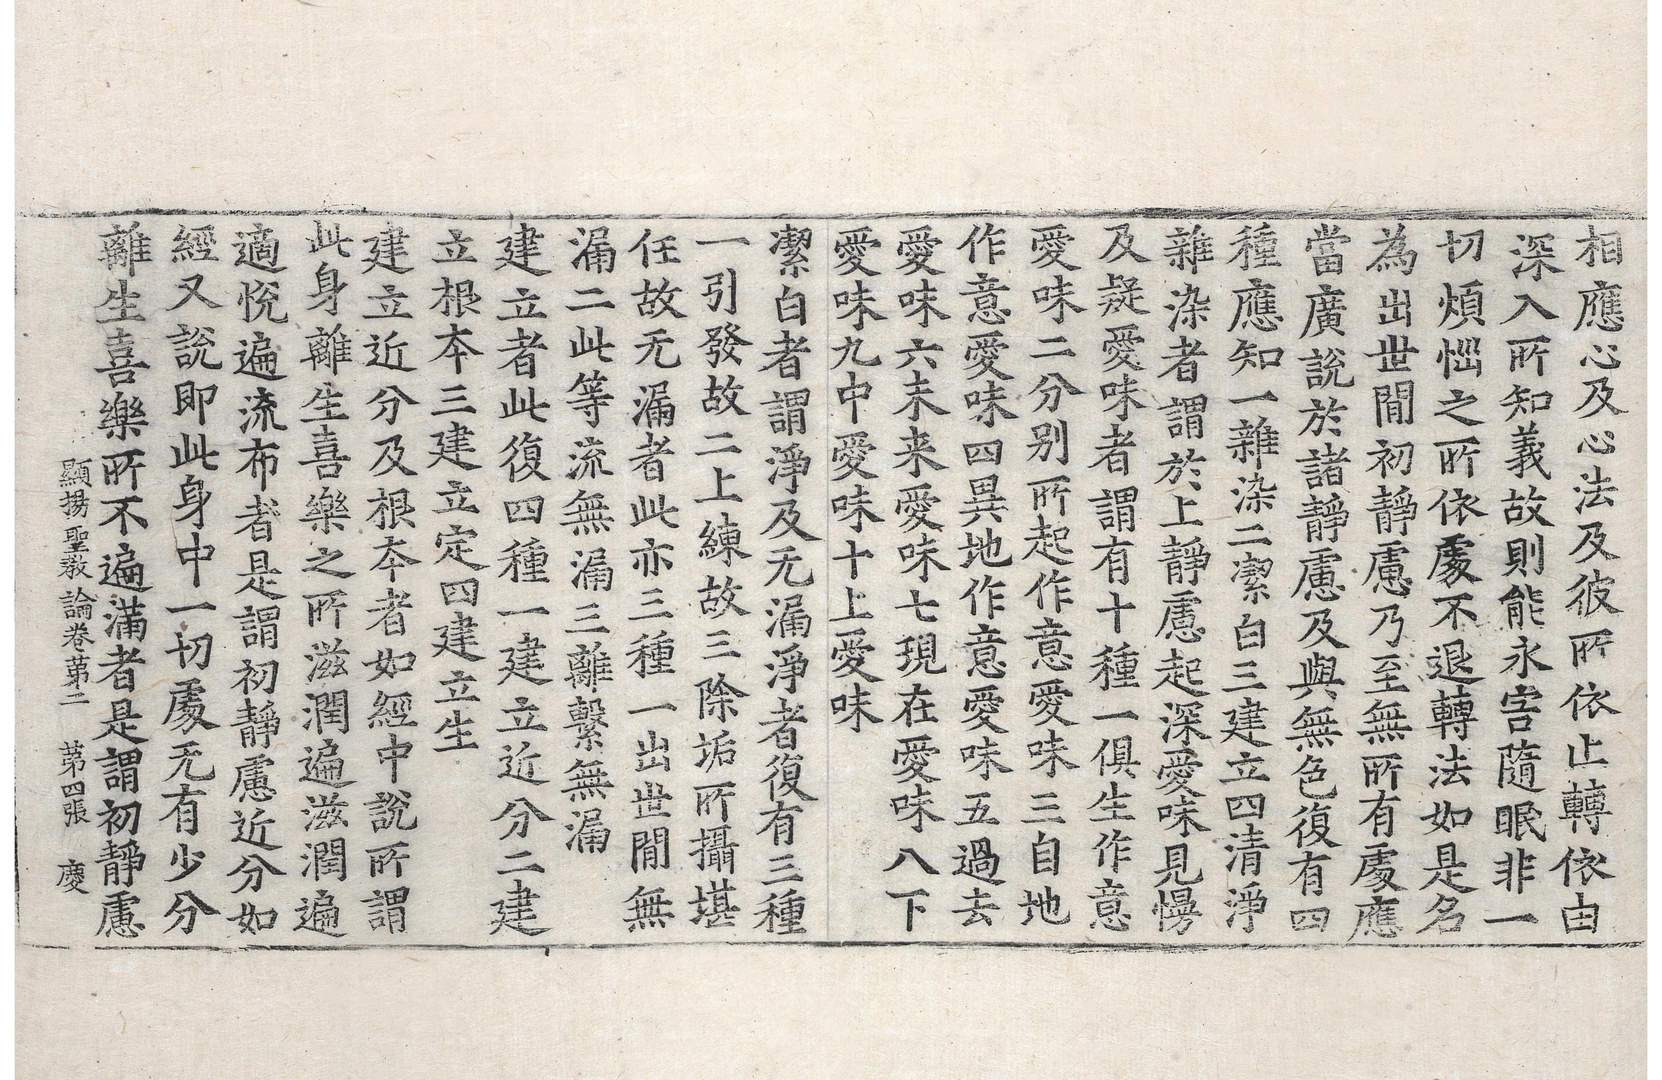 相應心及心法及彼所依止轉依由
深入所知義故則能永害隨眠非一
切煩惱之所依處不退轉法如是名
為出世間初靜慮乃至無所有處應
當廣說於諸靜慮及與無色復有四
種應知一雜染二潔白三建立四清淨
雜染者謂於上靜慮起深愛味見慢
及疑愛味者謂有十種一俱生作意
愛味二分別所起作意愛味三自地
作意愛味四異地作意愛味五過去
愛味六未来愛味七現在愛味八下
愛味九中愛味十上愛味
潔白者謂淨及无漏淨者復有三種
一引發故二上練故三除垢所攝堪
任故无漏者此亦三種一出世間無
漏二此等流無漏三離繫無漏
建立者此復四種一建立近分二建
立根夲三建立定四建立生
建立近分及根夲者如經中說所謂
此身離生喜樂之所滋潤遍滋潤遍
適悅遍流布者是謂初靜慮近分如
經又說即此身中一切處无有少分
離生喜樂所不遍滿者是謂初靜慮
顯揚聖教論卷第二　第四張　慶